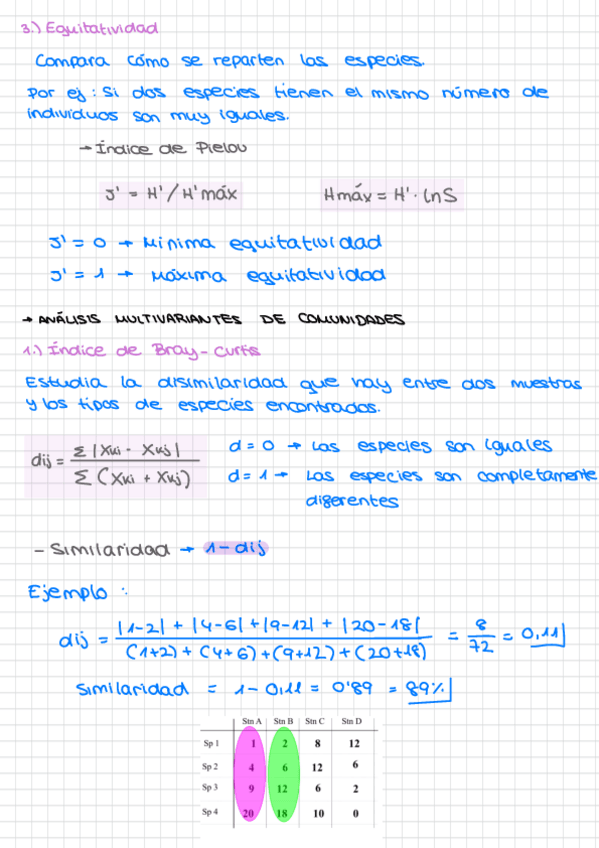 3.) Equitatividad
Compara cómo se reparten las especies.
Por ej: Si dos especies tienen el mismo número de
individuos son muy iguales.
→ Índice de Pielou
J' = H'/H'máx
Hmáx = H'·lnS
J' = 0 → Mínima equitatividad
J' = 1 → Máxima equitatividad
→ ANÁLISIS MULTIVARIANTES DE COMUNIDADES
1.) Índice de Bray-Curtis
Estudia la disimilaridad que hay entre dos muestras
y los tipos de especies encontrados.
dij = Σ |Xki - Xkj| / Σ (Xki + Xkj)
d = 0 → Las especies son iguales
d = 1 → Las especies son completamente
diferentes
- Similaridad → 1-dij
Ejemplo:
dij = |1-2| + |4-6| + |9-12| + |20-18| / (1+2) + (4+6) + (9+12) + (20+18) = 8/72 = 0,11
Similaridad = 1-0,11 = 0'89 = 89%
Stn A Stn B Stn C Stn D
Sp 1 1 2 8 12
Sp 2 4 6 12 6
Sp 3 9 12 6 2
Sp 4 20 18 10 0